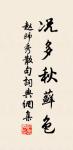 况多秋蘚色
赵师秀散句词典网集